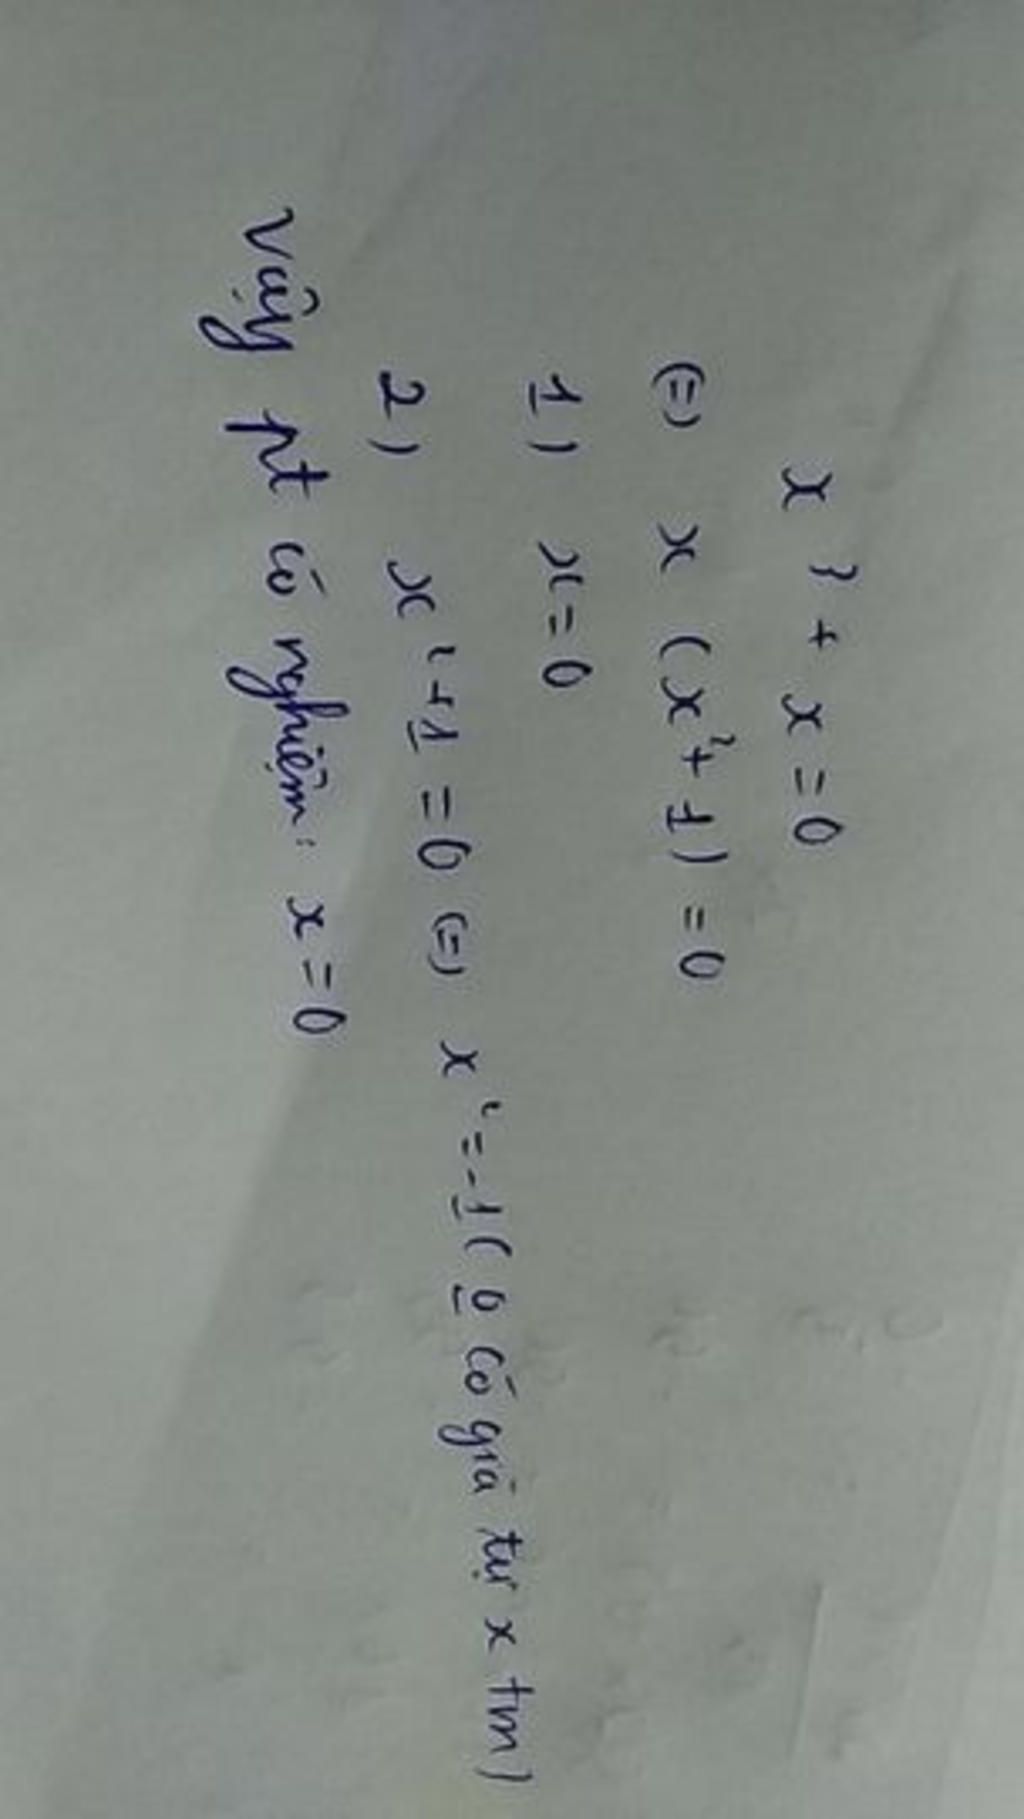 x³ + x = 0
(=) x (x² + 1) = 0
1) x = 0
2) x² + 1 = 0 (=) x² = -1 ( o̲ có giá tự x tm)
Vậy pt có nghiệm: x = 0